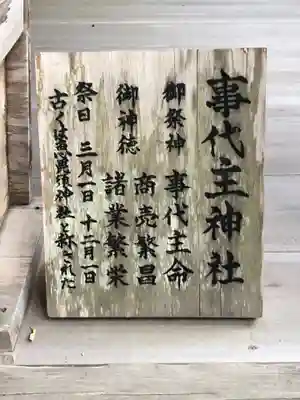 事代主神社
御祭神 事代主命
御神徳 商売繁昌
諸業繁栄
祭日 三月一日 十二月一日
古くは恵比須神社と称された